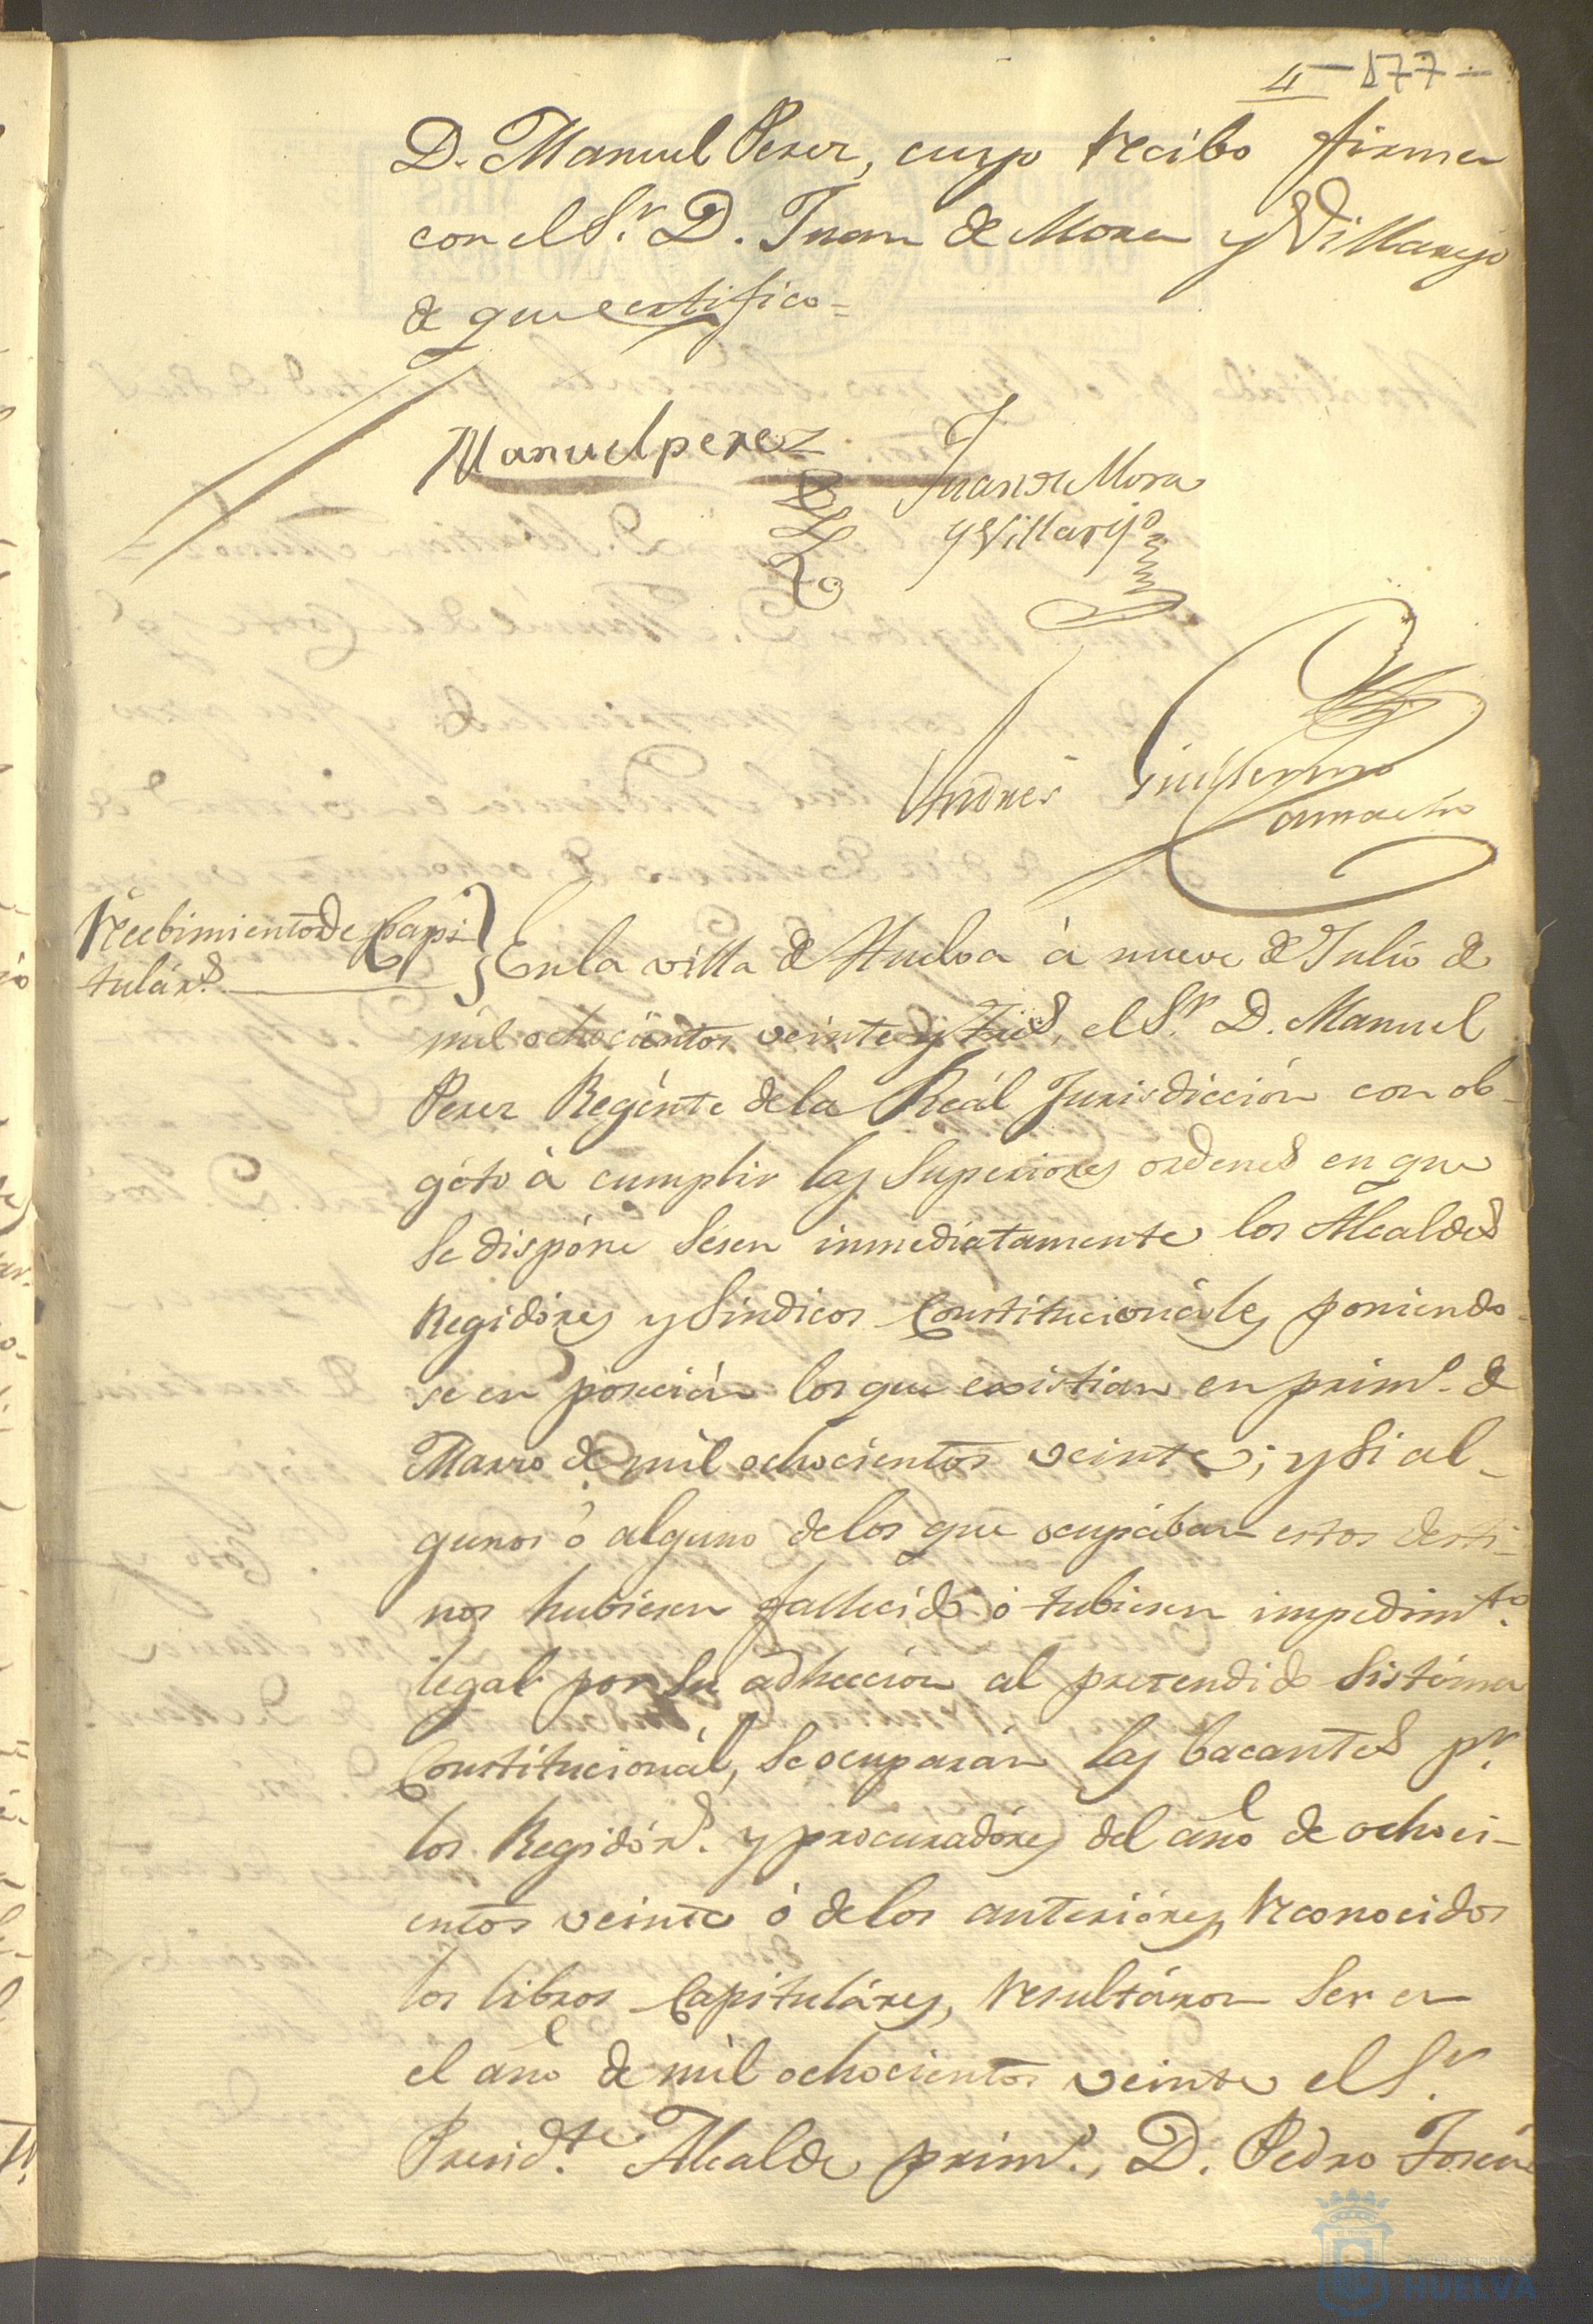 4 - 577 -
D. Manuel Perez, cuyo recibo firma
con el S.r D. Juan de Mora y Villarejo
de que certifico =
Manuel perez
Juan de Mora
y Villarejo
Andres Guillermo
Camacho
Recebimiento de Capi
tulár.s
En la villa de Huelva à nueve de Julio de
mil ochocientos veinte y tres, el S.r D. Manuel
Perez Regénte de la Reál Jurisdiccion con ob-
géto à cumplir las Superiores ordenes en que
se dispóne Sesen inmediatamente los Alcaldes
Regidóres y Sindicos Constitucionáles poniendo
se en posecián los que existian en prim.o de
Marzo de mil ochocientos veinte; y Si al-
gunos ó alguno de los que ocupában estos desti-
nos hubiesen fallecido ó tubiesen impedim.to
legal por su adhecion al pretendido Sistéma
Constitucionál, se ocuparán las bacantes p.r
los Regidór.s y procuradóres del año de ochoci-
entos veinte ó de los anterióres, reconocidos
los libros Capituláres, resultáron Ser en
el año de mil ochocientos veinte el S.r
Presid.te Alcalde prim.o, D. Pedro José
Ayuntamiento de
HUELVA